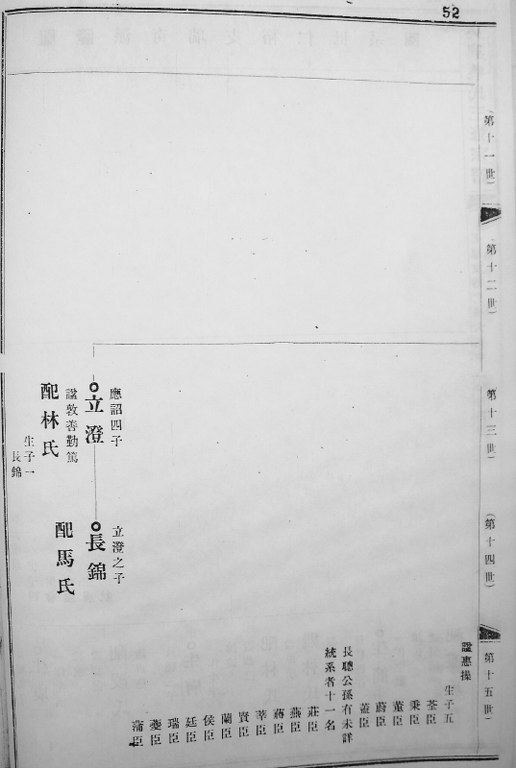 52
第十一世
第十二世
第十三世
第十四世
第十五世
應詔四子
立澄
諡敦善勤篤
配林氏
生子一
長錦
立澄之子
長錦
配馬氏
諡惠操
生子五
荃臣
秉臣
董臣
蔚臣
蓋臣
長聰公孫有未詳
統系者十一名
莊臣
燕臣
蔣臣
莘臣
賢臣
蘭臣
侯臣
廷臣
瑞臣
臣
蒲臣